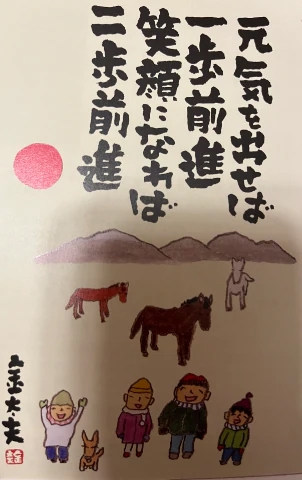 元気を出せば
一歩前進
笑顔になれば
二歩前進